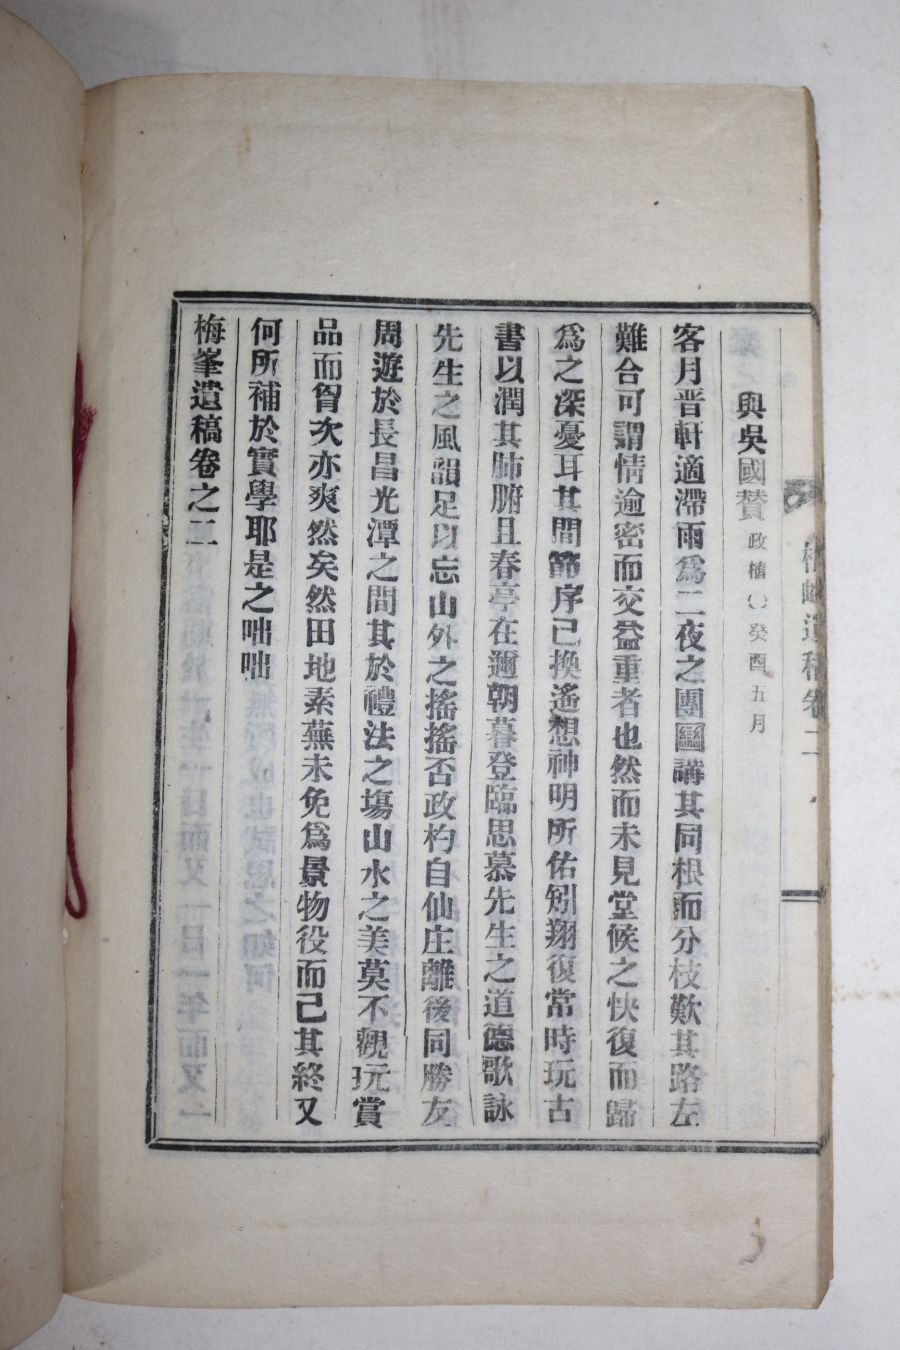 梅峰遺稿卷二
與吳國賛 政植( )癸酉五月
客月晋軒適滯雨爲二夜之團圞講其同根而分枝歎其路左
難合可謂情逾密而交益重者也然而未見堂候之快復而歸
爲之深憂耳其間節序已換遙想神明所佑矧翔復常時玩古
書以潤其肺腑且春亭在邇朝暮登臨思慕先生之道德歌詠
先生之風韻足以忘山外之搖搖否政杓自仙庄離後同勝友
周遊於長昌光潭之間其於禮法之塲山水之美莫不觀玩賞
品而胷次亦爽然矣然田地素蕪未免爲景物役而已其終又
何所補於實學耶是之咄咄
梅峯遺稿卷之二